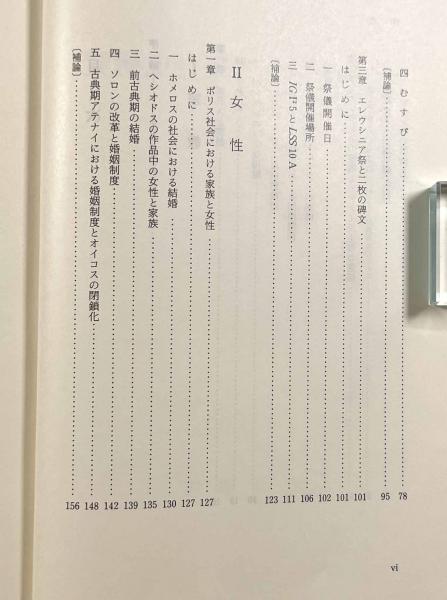 四 むすび……78
〔補論〕……95
第三章 エレウシニア祭と二枚の碑文……101
はじめに……101
一 祭儀開催日……102
二 祭儀開催場所……106
三 IG I³ 5 と LSS 10 A……111
〔補論〕……123
II 女性
第一章 ポリス社会における家族と女性……127
はじめに……127
一 ホメロスの社会における結婚……130
二 ヘシオドスの作品中の女性と家族……135
三 前古典期の結婚……139
四 ソロンの改革と婚姻制度……142
五 古典期アテナイにおける婚姻制度とオイコスの閉鎖化……148
〔補論〕……156
vi